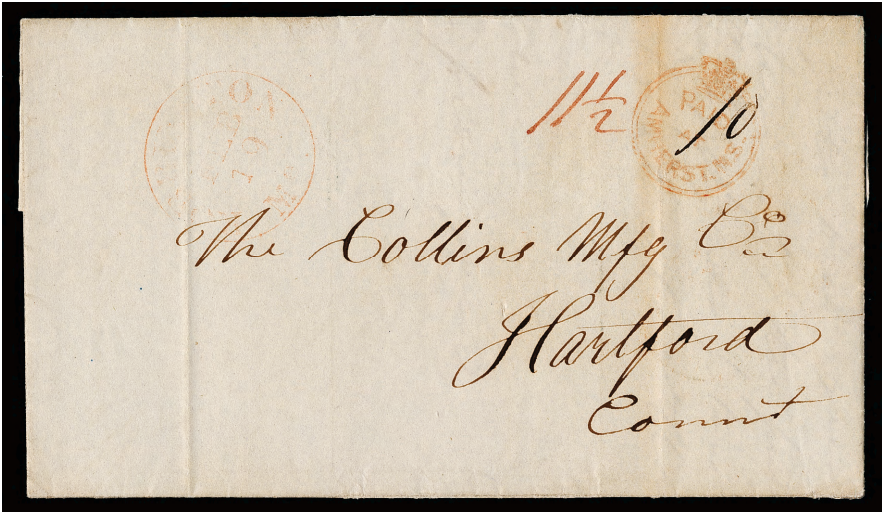 11½
10
PAID
AT
AMHERST. N.S.
19
The Collins Mfg Co
Hartford
Connt